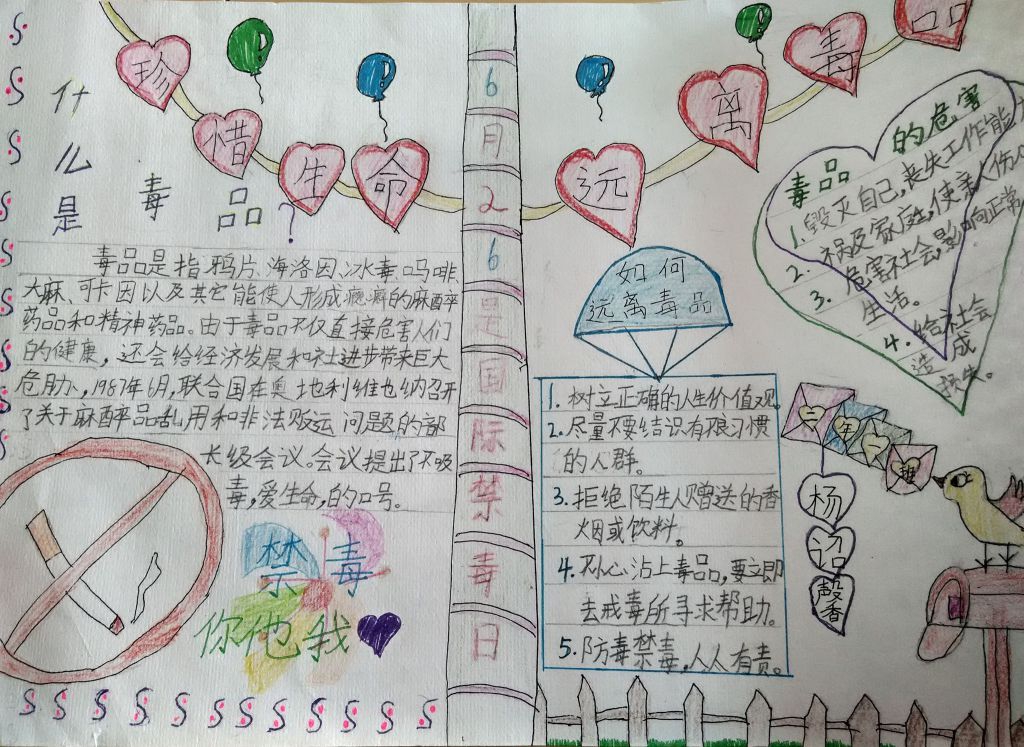 珍惜生命
远离毒品
什么是毒品?
毒品是指鸦片、海洛因、冰毒吗啡、
大麻、可卡因以及其它能使人形成瘾癖的麻醉
药品和精神药品。由于毒品不仅直接危害人们
的健康，还会给经济发展和社进步带来巨大
危胁、1987年6月，联合国在奥地利维也纳召开
了关于麻醉品乱用和非法贩运问题的部
长级会议。会议提出了不吸
毒，爱生命，的口号。
禁毒
你他我
6月26是国际禁毒日
如何
远离毒品
1. 树立正确的人生价值观。
2. 尽量不要结识有不良习惯
的人群。
3. 拒绝陌生人赠送的香
烟或饮料。
4. 不小心沾上毒品，要立即
去戒毒所寻求帮助。
5. 防毒禁毒，人人有责。
毒品的危害
1. 毁灭自己，丧失工作能
2. 祸及家庭，使亲人伤心
3. 危害社会，影响正常
生活。
4. 给社会
造成
损失。
二年一班
杨
诏
馨